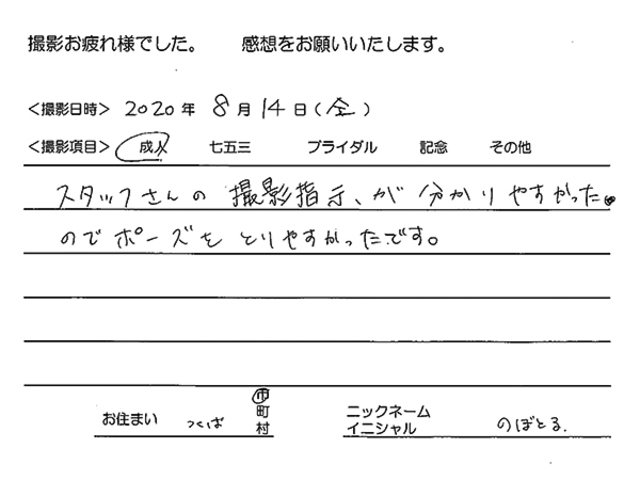 撮影お疲れ様でした。 感想をお願いいたします。
<撮影日時> 2020年 8月14日(金)
<撮影項目> 成人 七五三 ブライダル 記念 その他
スタッフさんの撮影指示、が分かりやすかった。
のでポーズをとりやすかったです。
お住まい つくば 市町村
ニックネーム イニシャル のぼとる.